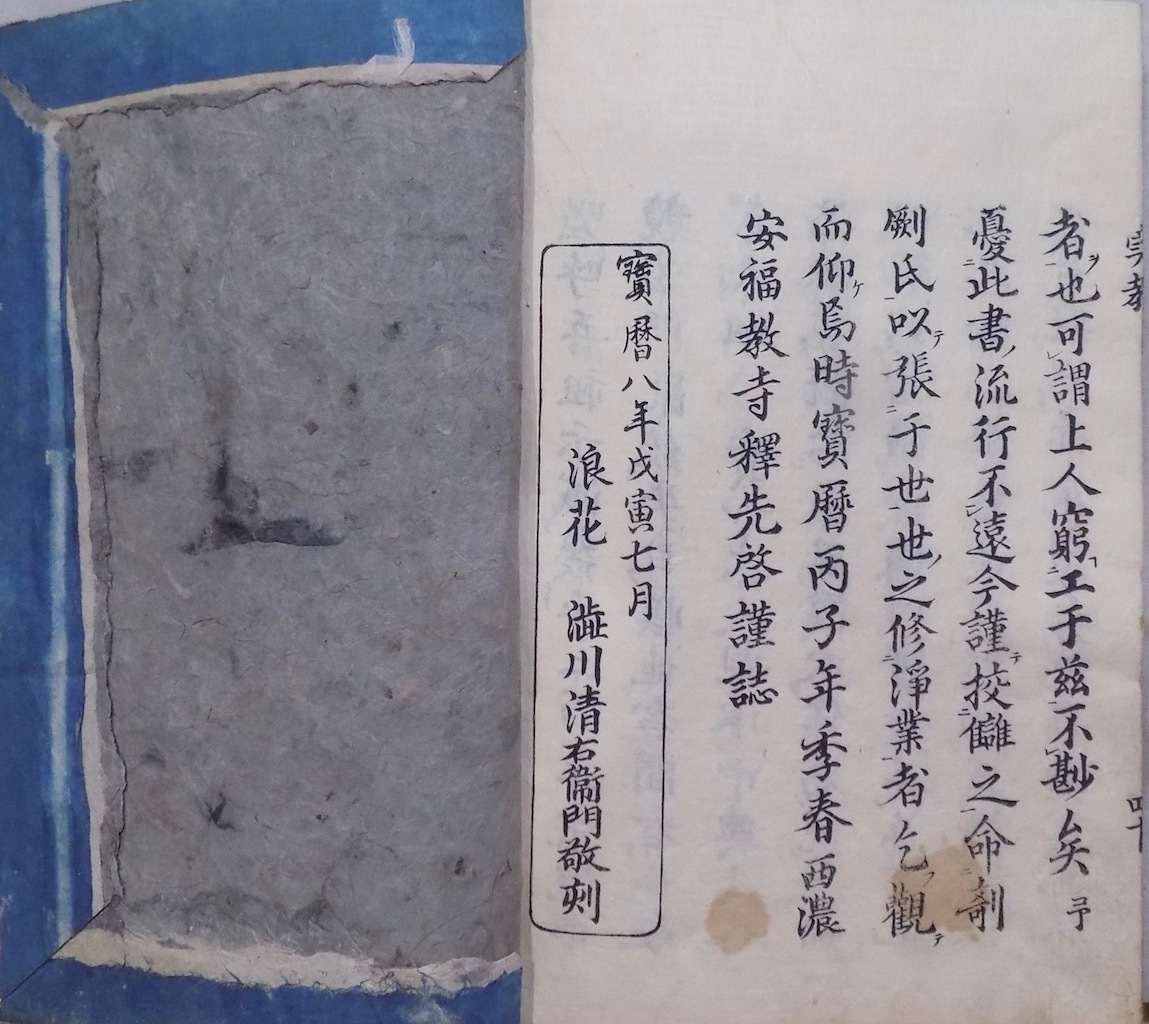 者也可謂上人窮工于茲不尠矣予
憂此書流行不遠今謹挍讎之命剞
劂氏以張于世世之修淨業者乞觀
而仰焉時寶曆丙子年季春西濃
安福教寺釋先啓謹誌
寶曆八年戊寅七月
浪花 澁川清右衞門敬刻